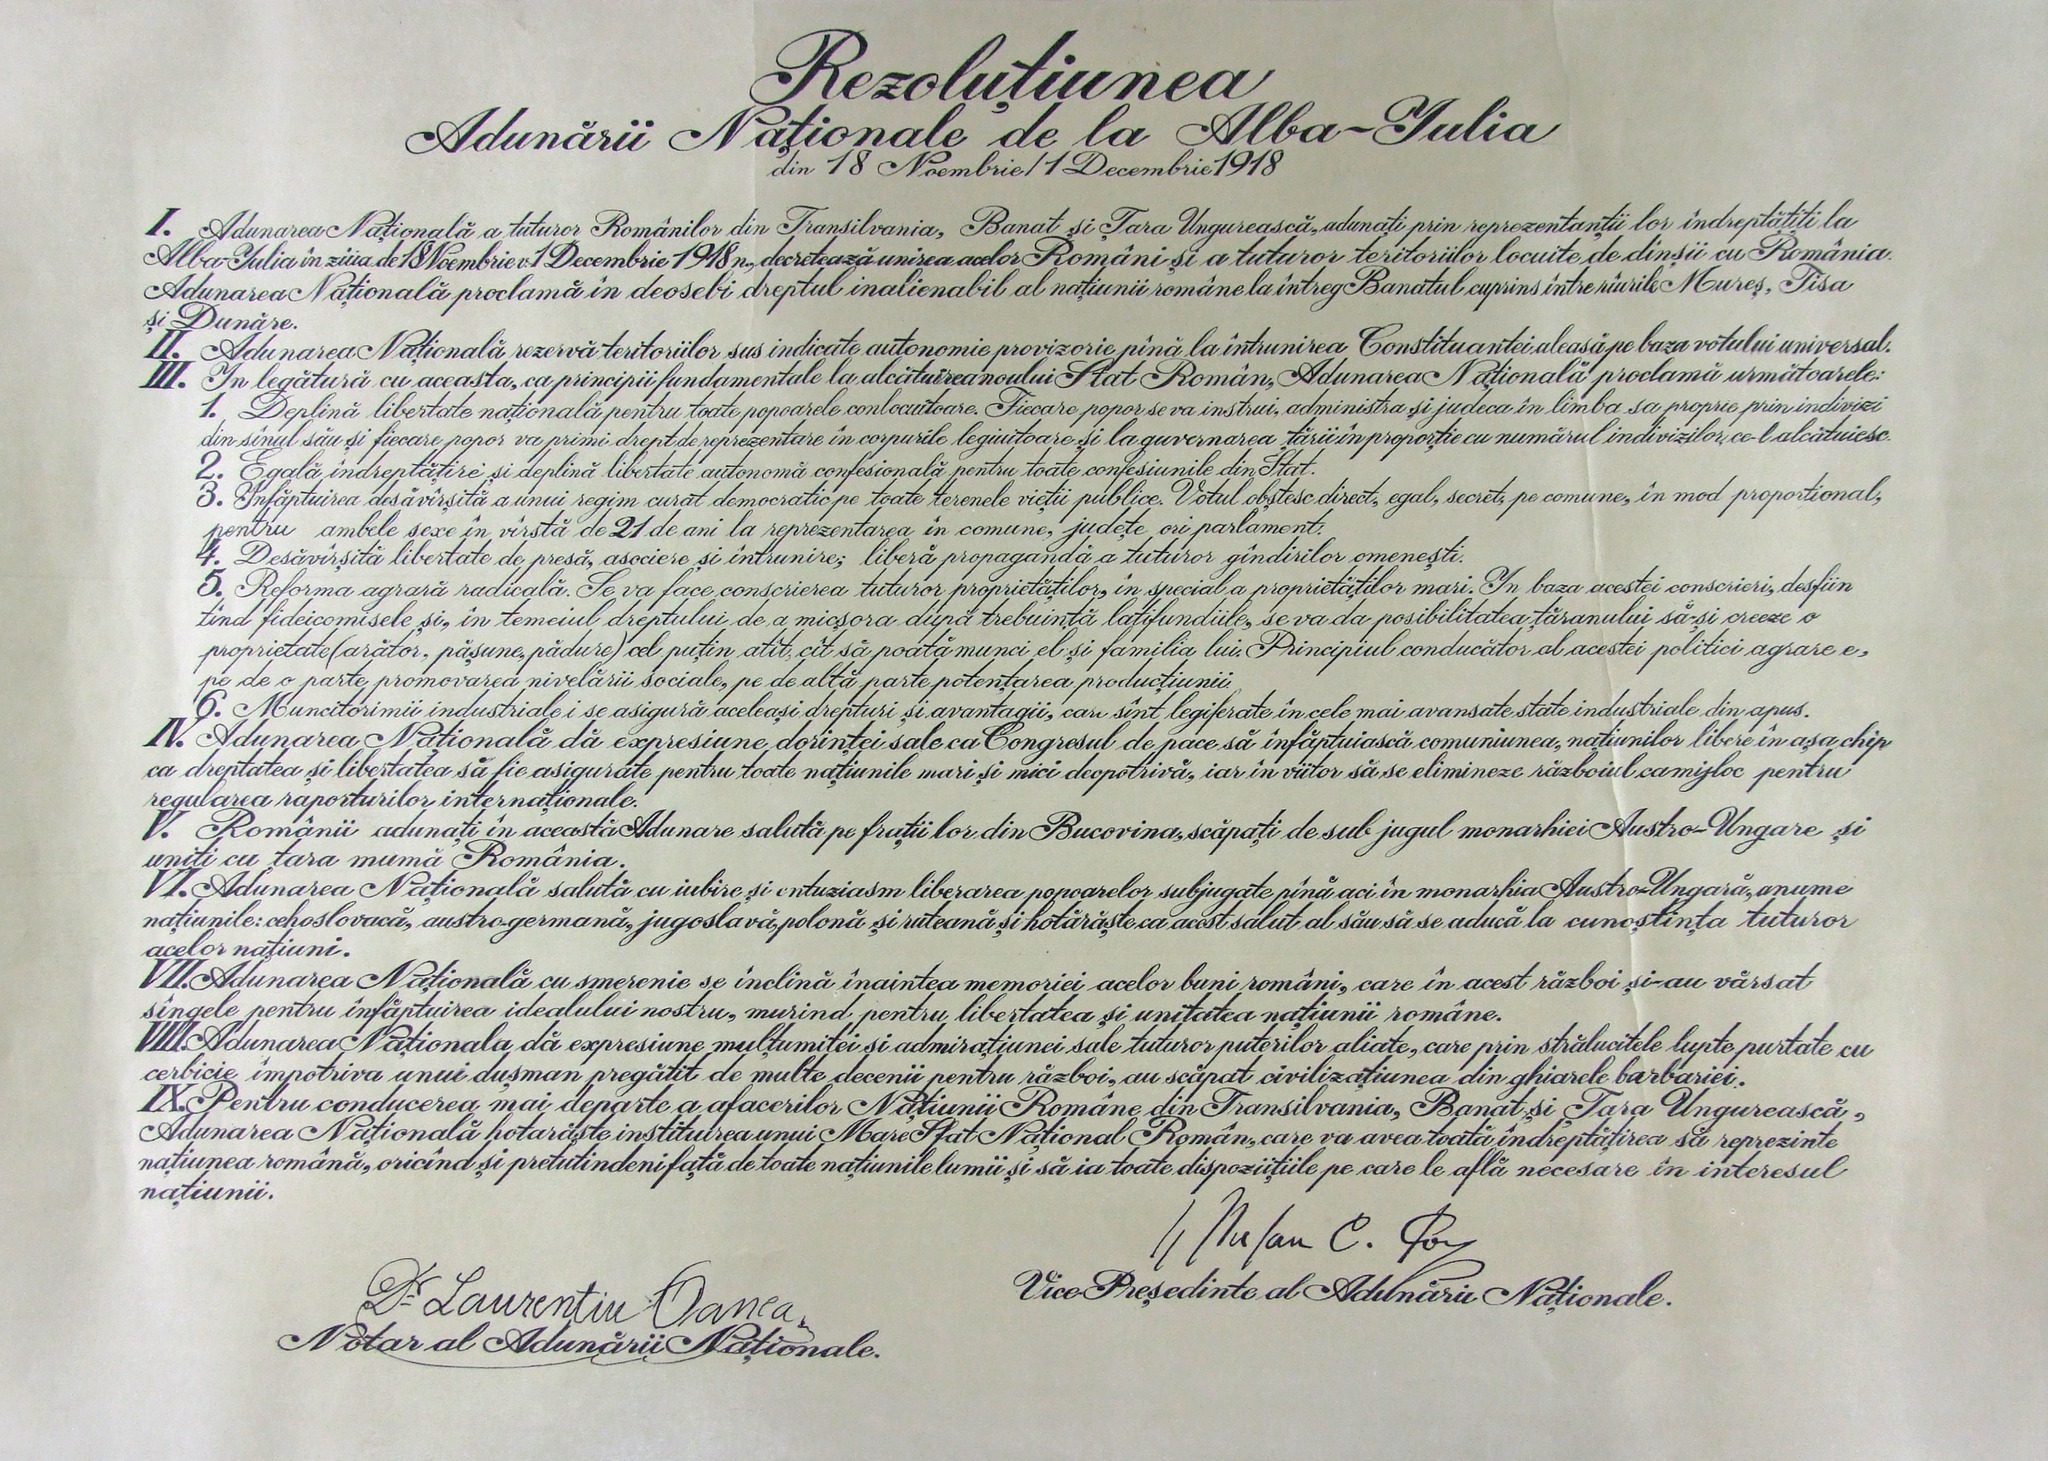 Rezoluțiunea
Adunării Naționale de la Alba-Iulia
din 18 Noembrie/1 Decembrie 1918
I. Adunarea Națională a tuturor Românilor din Transilvania, Banat și Țara Ungurească, adunați prin reprezentanții lor îndreptățiți la
Alba-Iulia în ziua de 18 Noembrie v. 1 Decembrie 1918 n., decretează unirea acelor Români și a tuturor teritoriilor locuite de dînșii cu România.
Adunarea Națională proclamă în deosebi dreptul inalienabil al națiunii române la întreg Banatul cuprins între rîurile Mureș, Tisa
și Dunăre.
II. Adunarea Națională rezervă teritoriilor sus indicate autonomie provizorie pînă la întrunirea Constituantei aleasă pe baza votului universal.
III. In legătură cu aceasta, ca principii fundamentale la alcătuirea noului Stat Român, Adunarea Națională proclamă următoarele:
1. Deplină libertate națională pentru toate popoarele conlocuitoare. Fiecare popor se va instrui, administra și judeca în limba sa proprie prin indivizi
din sînul său și fiecare popor va primi drept de reprezentare în corpurile legiuitoare și la guvernarea țării în proporție cu numărul indivizilor, ce-l alcătuiesc.
2. Egală îndreptățire și deplină libertate autonomă confesională pentru toate confesiunile din Stat.
3. Infăptuirea desăvîrșită a unui regim curat democratic pe toate terenele vieții publice. Votul obștesc direct, egal, secret, pe comune, în mod proporțional,
pentru ambele sexe în vîrstă de 21 de ani la reprezentarea în comune, județe ori parlament.
4. Desăvîrșită libertate de presă, asociere și întrunire; liberă propagandă a tuturor gîndirilor omenești.
5. Reforma agrară radicală. Se va face conscrierea tuturor proprietăților, în special a proprietăților mari. In baza acestei conscrieri, desfiin
țînd fideicomisele și, în temeiul dreptului de a micșora după trebuință latifundiile, se va da posibilitatea țăranului să-și creeze o
proprietate (arător, pășune, pădure) cel puțin atît, cît să poată munci el și familia lui. Principiul conducător al acestei politici agrare e,
pe de o parte promovarea nivelării sociale, pe de altă parte potențarea producțiunii.
6. Muncitorimii industriale i se asigură aceleași drepturi și avantagii, cari sînt legiferate în cele mai avansate state industriale din apus.
IV. Adunarea Națională dă expresiune dorinței sale ca Congresul de pace să înfăptuiască comuniunea, națiunilor libere în așa chip
ca dreptatea și libertatea să fie asigurate pentru toate națiunile mari și mici deopotrivă, iar în viitor să se elimineze războiul ca mijloc pentru
regularea raporturilor internaționale.
V. Românii adunați în această Adunare salută pe frații lor din Bucovina, scăpați de sub jugul monarhiei Austro-Ungare și
uniți cu țara mumă România.
VI. Adunarea Națională salută cu iubire și entuziasm liberarea popoarelor subjugate pînă aci în monarhia Austro-Ungară, anume
națiunile: cehoslovacă, austro-germană, jugoslavă, polonă și ruteană și hotărăște ca acest salut al său să se aducă la cunoștința tuturor
acelor națiuni.
VII. Adunarea Națională cu smerenie se înclină înaintea memoriei acelor buni români, care în acest război și-au vărsat
sîngele pentru înfăptuirea idealului nostru, murind pentru libertatea și unitatea națiunii române.
VIII. Adunarea Naționala dă expresiune mulțumitei și admirațiunei sale tuturor puterilor aliate, care prin strălucitele lupte purtate cu
cerbicie împotriva unui dușman pregătit de multe decenii pentru război, au scăpat civilizațiunea din ghiarele barbariei.
IX. Pentru conducerea mai departe a afacerilor Națiunii Române din Transilvania, Banat și Țara Ungurească,
Adunarea Națională hotarăște instituirea unui Mare Sfat Național Român, care va avea toată îndreptățirea să reprezinte
națiunea română, oricînd și pretutindeni față de toate națiunile lumii și să ia toate dispozițiile pe care le află necesare în interesul
națiunii.
Ștefan C. Pop
Vice-Președinte al Adunării Naționale.
Dr Laurențiu Oanea
Notar al Adunării Naționale.